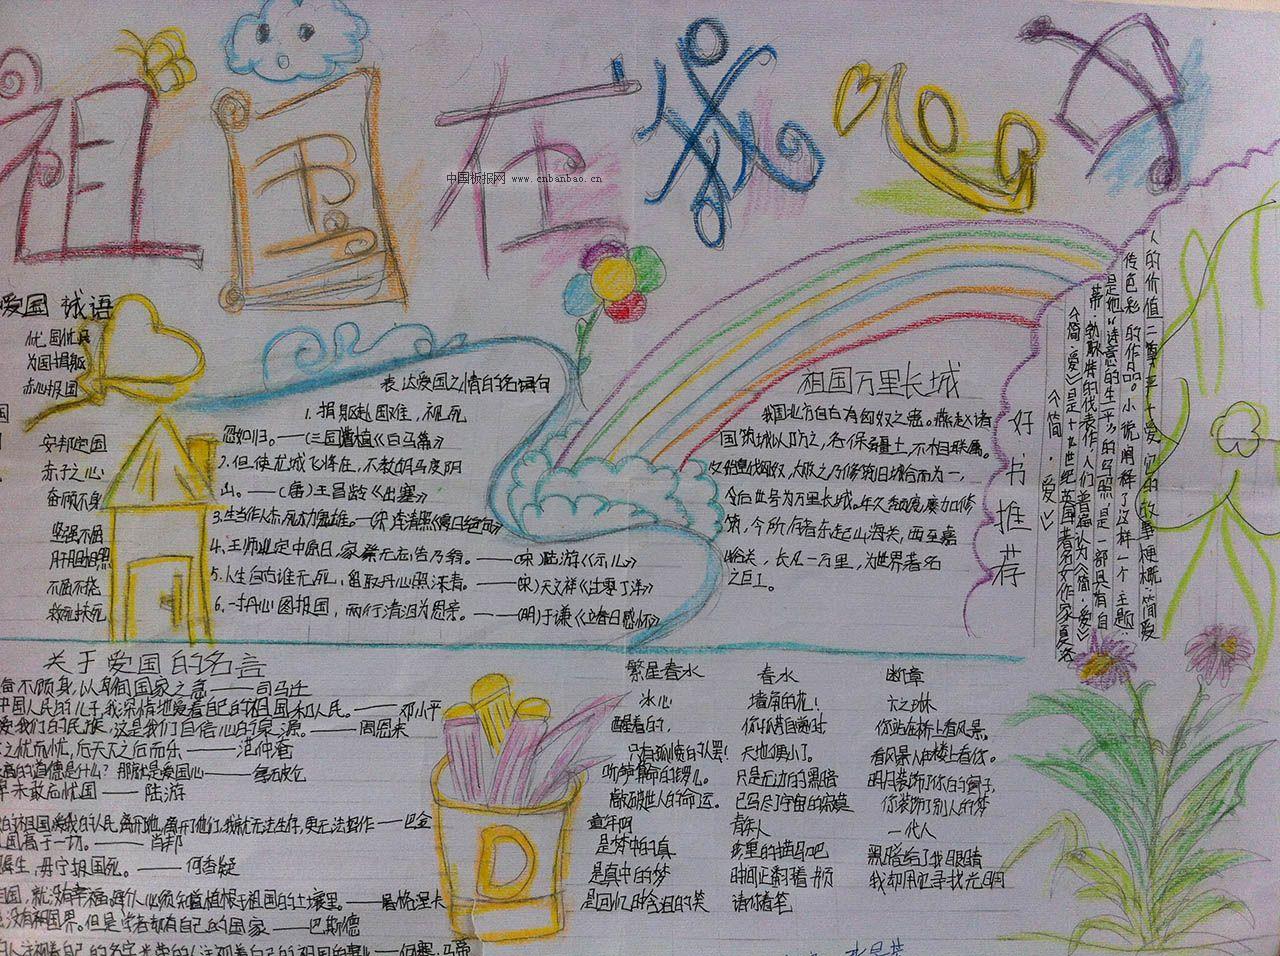 祖国在我心中
中国板报网 www.cnbanbao.cn
爱国 成语
优国优民
为国捐躯
赤心报国
安邦定国
赤子之心
奋顾不身
坚强不屈
肝胆相照
不屈不挠
表达爱国之情的名词句
1. 捐躯赴国难，视死
忽如归。——(三国曹植《白马篇》)
2. 但使龙城飞将在，不教胡马度阴
山。——(唐)王昌龄《出塞》
3. 生当作人杰,死亦为鬼雄。—(宋)李清照《夏日绝句》
4. 王师北定中原日,家祭无忘告乃翁。——(宋)陆游《示儿》
5. 人生自古谁无死,留取丹心照汗青。——(宋)文天祥《过零丁洋》
6. 一寸丹心图报国，两行清泪为思亲。——(明)于谦《立春日感怀》
祖国万里长城
我国北方自古有匈奴之患。燕赵诸
国筑城以防之,各保疆土,不相联属。
令后世号为万里长城。年久颓废屡加修
筑,今所存者东起山海关,西至嘉
峪关,长凡一万里,为世界著名
之巨工。
好书推荐
《简·爱》
《简·爱》是十九世纪英国著名女作家夏洛
蒂·勃朗特的代表作,人们普遍认为《简·爱》
是她“诗意的生平”的写照,是一部具有自
传色彩的作品。小说阐释了这样一个主题:
人的价值=尊严+爱 它的故事梗概:简爱
关于爱国的名言
奋不顾身,以身殉国家之急——司马迁
中国人民的儿子,我深情地爱着自己的祖国和人民。——邓小平
爱我们的民族,这是我们自信心的泉源。——周恩来
之忧而忧,后天下之后而乐——范仲淹
高的道德是什么？那就是爱国心——拿破伦
卑未敢忘忧国——陆游
的祖国,爱我的人民,离开她,离开了他们,我就无法生存,更无法写作——巴金
国高于一切。——肖邦
生,毋宁报国死。——何香凝
祖国,就没有幸福。每个人必须植根于祖国的土壤里。——屠格涅夫
没有祖国界。但是学者却有自己的国家——巴斯德
繁星春水
冰心
醒着的,
只有孤愤的人罢！
听声声算命的锣儿。
敲破世人的命运。
童年呵
是梦中的真
是真中的梦
是回忆时含泪的笑
春水
墙角的花！
你孤芳自赏时
天地便小了。
只是无边的黑暗
已写尽了宇宙的
青年人
珍重的描写吧
时间正翻着书页
请你着笔
断章
卞之琳
你站在桥上看风景,
看风景人在楼上看你。
明月装饰了你的窗子,
你装饰了别人的梦
一代人
黑暗给了我眼睛
我却用它寻找光明